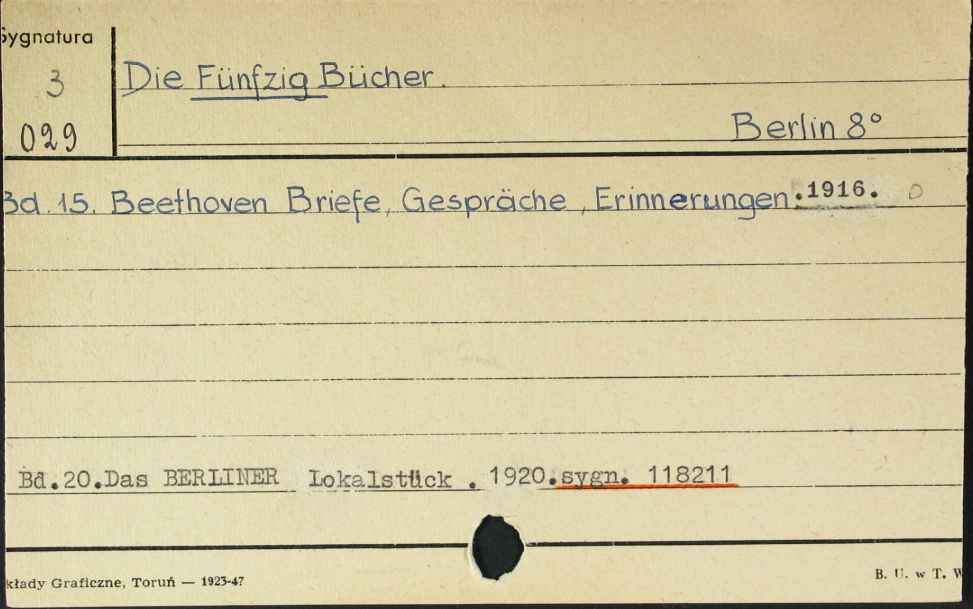 Sygnatura
3
029
Die Fünfzig Bücher.
Berlin 8°
Bd. 15. Beethoven Briefe, Gespräche, Erinnerungen.1916.
Bd.20.Das BERLINER Lokalstück . 1920.sygn. 118211
kłady Graficzne, Toruń — 1923-47
B. U. w T. W